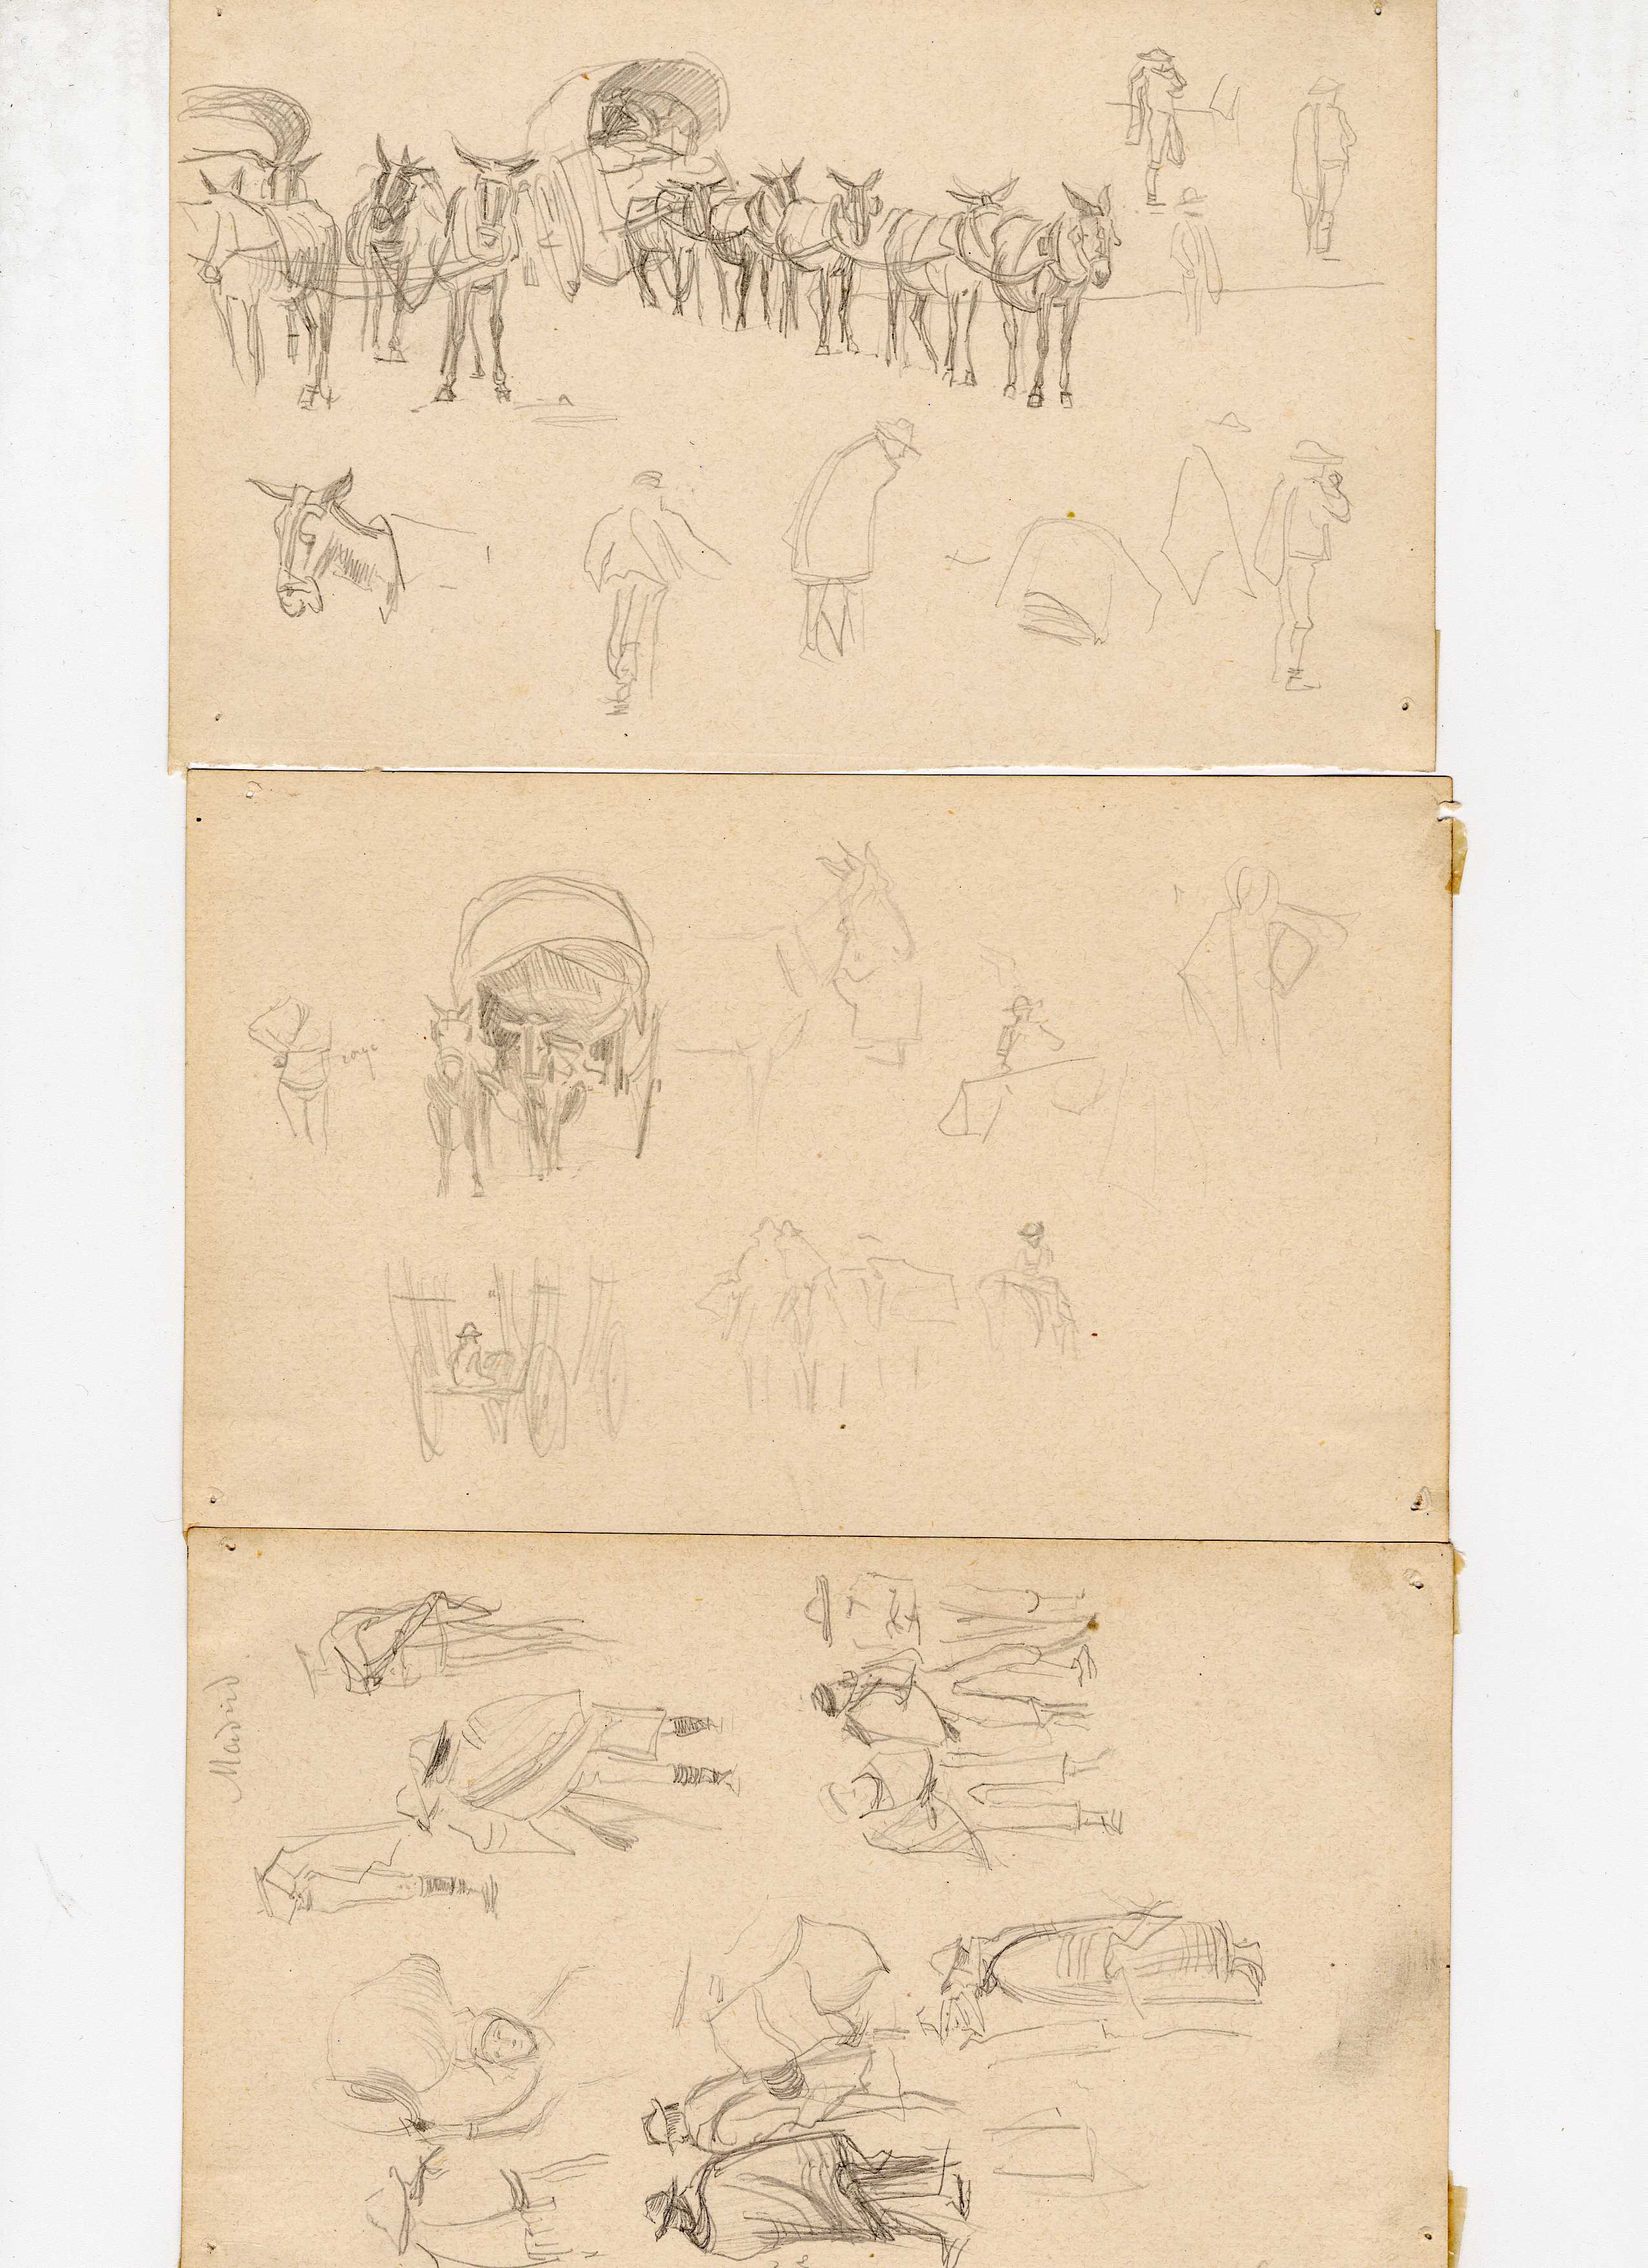 rouge
Madrid